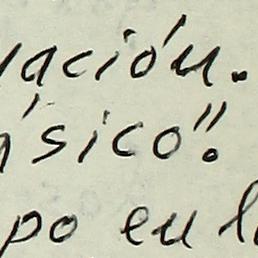 vación.
ásico".
po en l